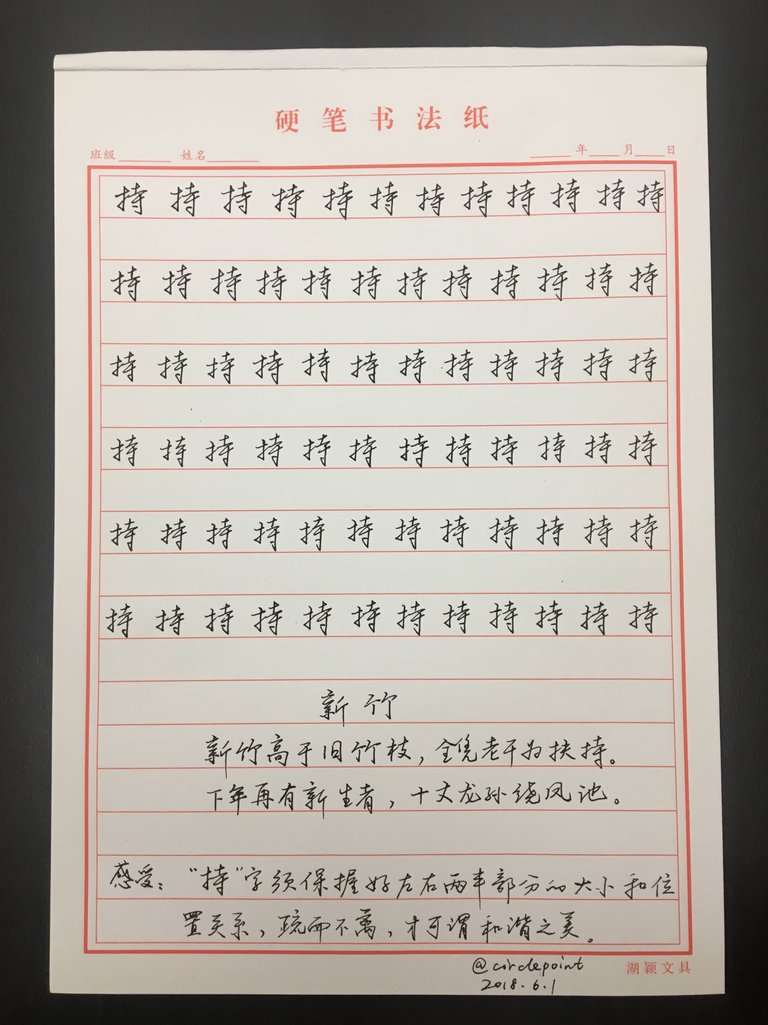 硬笔书法纸
班级 姓名 年 月 日
持 持 持 持 持 持 持 持 持 持 持 持
持 持 持 持 持 持 持 持 持 持 持 持
持 持 持 持 持 持 持 持 持 持 持 持
持 持 持 持 持 持 持 持 持 持 持 持
持 持 持 持 持 持 持 持 持 持 持 持
持 持 持 持 持 持 持 持 持 持 持 持
新竹
新竹高于旧竹枝，全凭老干为扶持。
下年再有新生者，十丈龙孙绕凤池。
感受：“持”字须保握好左右两半部分的大小和位
置关系，疏而不离，才可谓和谐之美。
@circlepoint
湖颖文具
2018.6.1